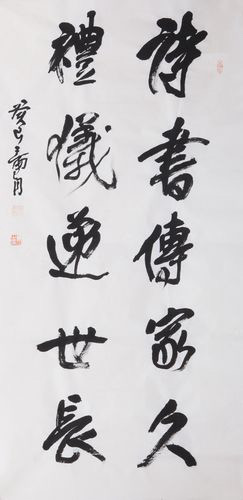 詩書傳家久
禮儀世長
癸巳月